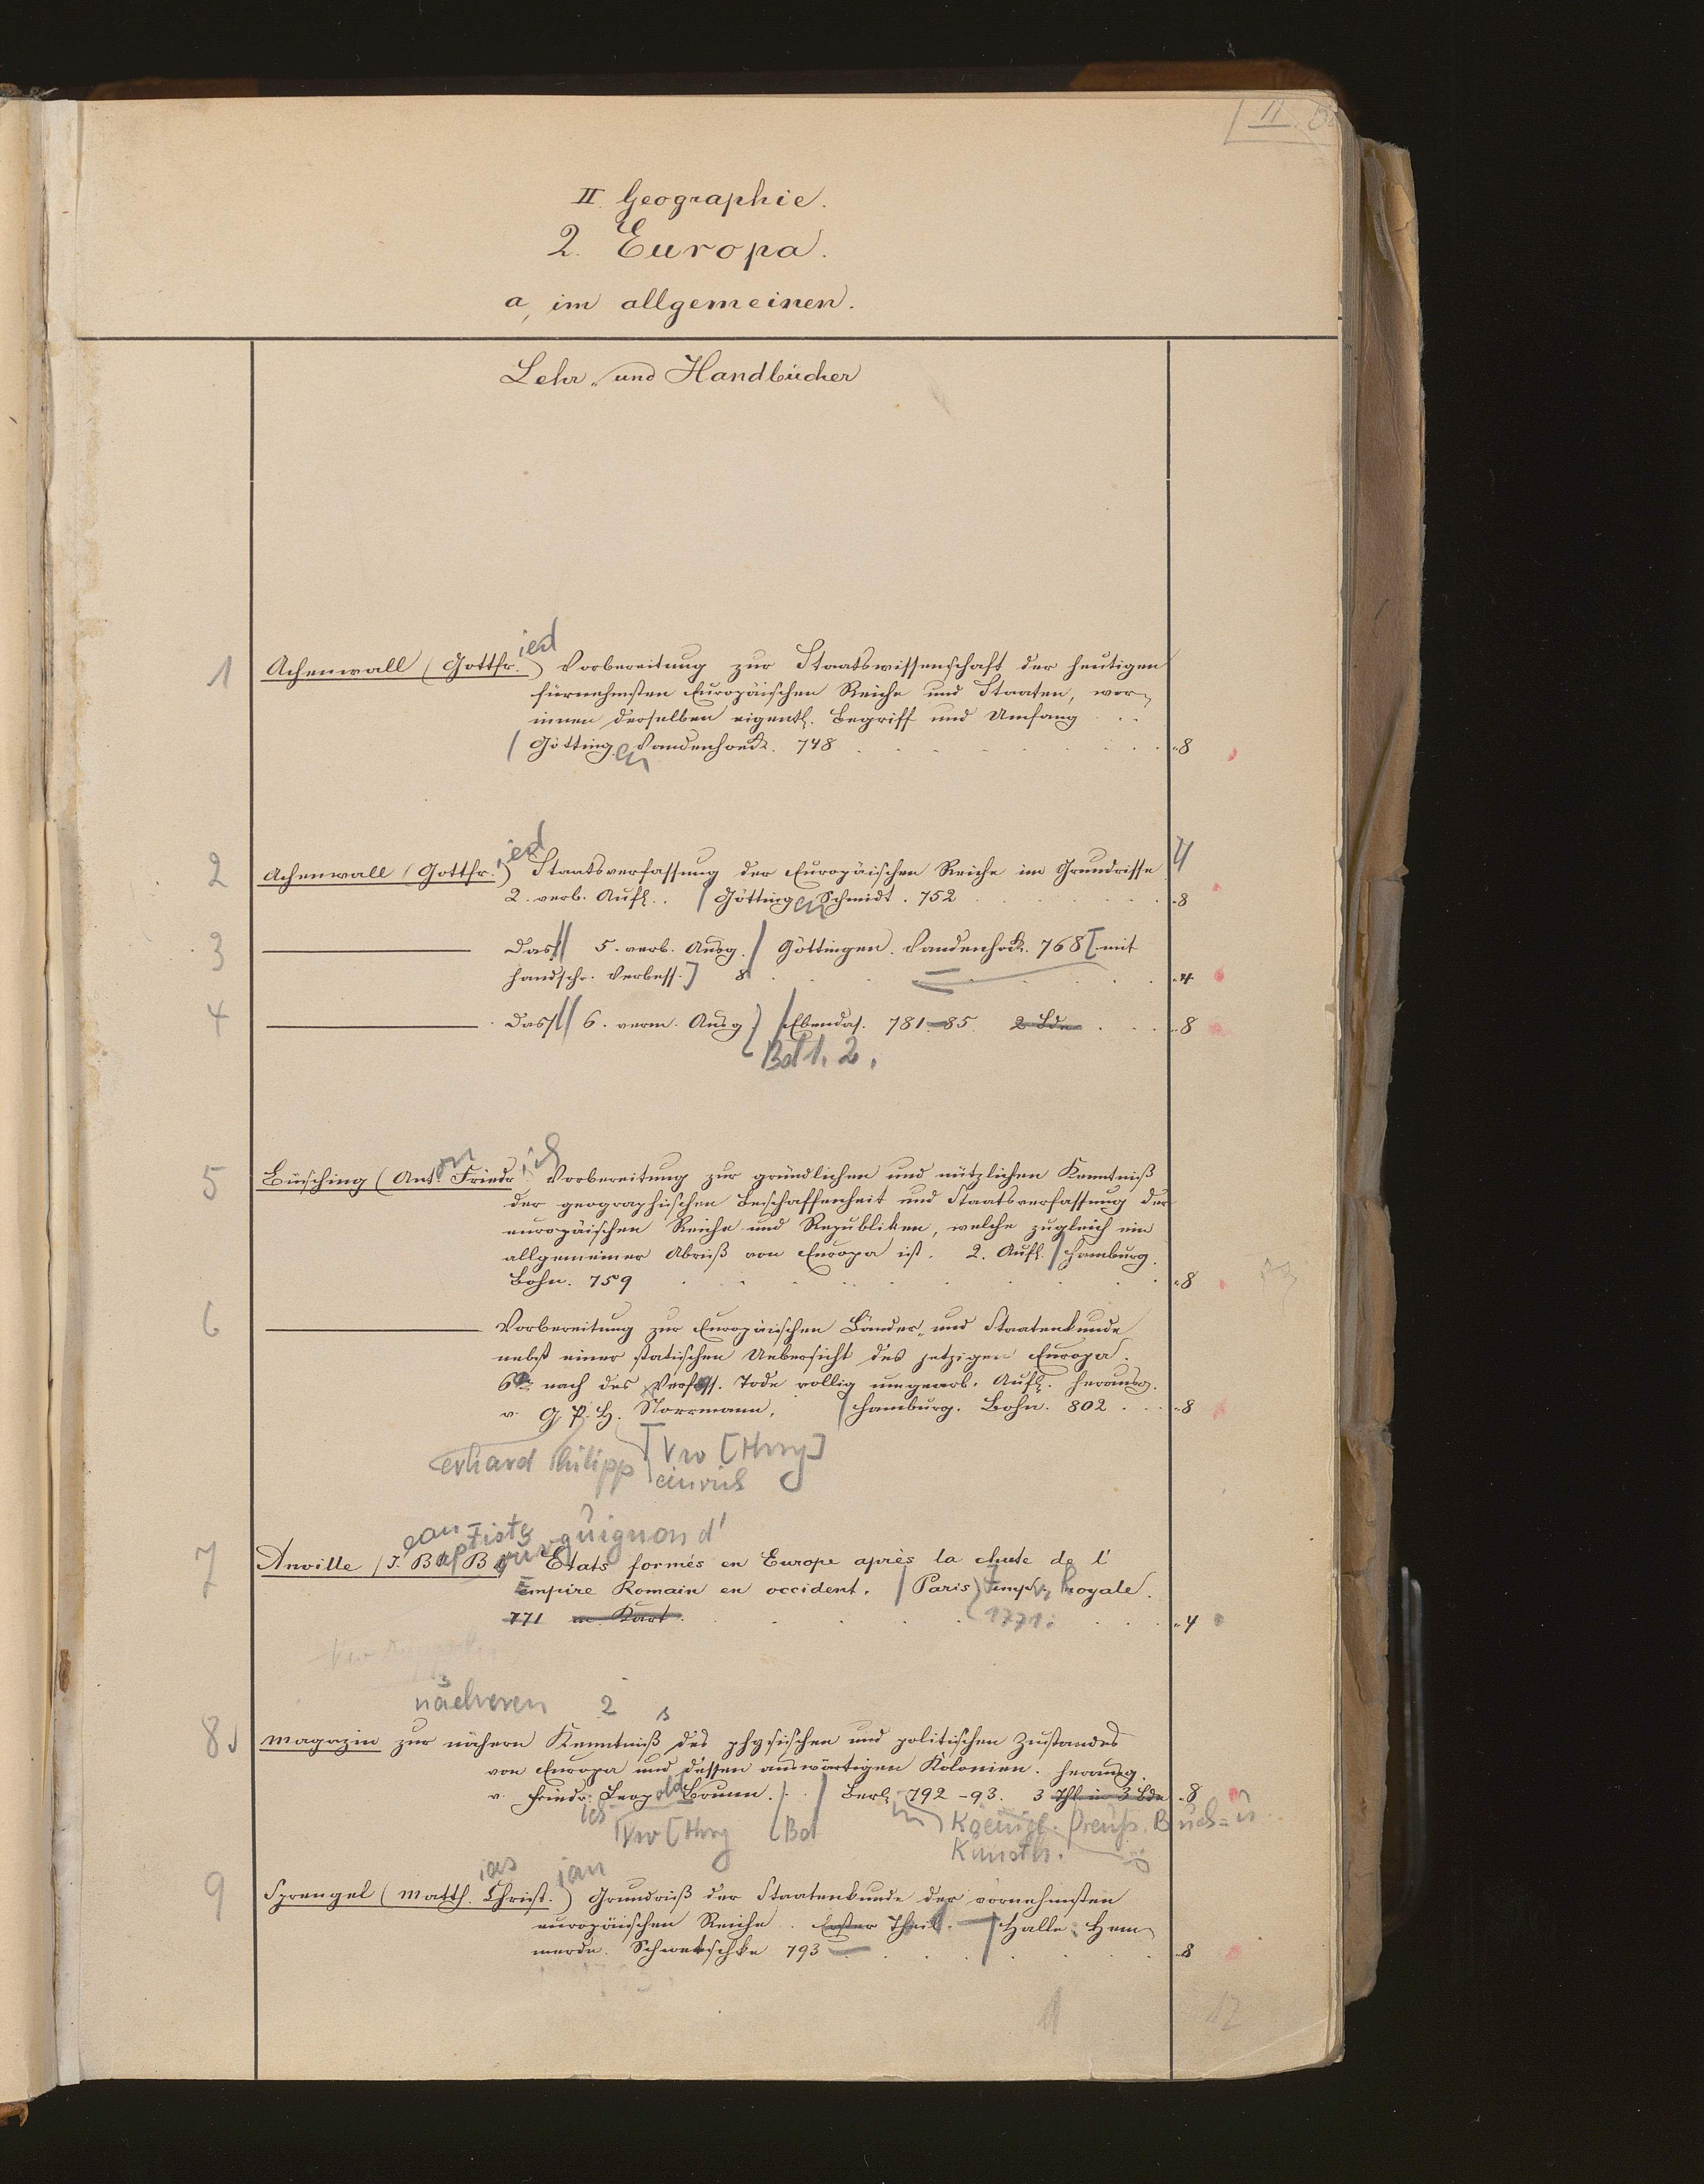 II
II. Geographie.
2. Europa.
a, im allgemeinen.
Lehr- und Handbücher
ied
1 Achenwall (Gottfr.) Vorbereitung zur Staatswissenschaft der heutigen
fürnehmsten Europäischen Reiche und Staaten, wor-
innen derselben eigentl. Begriff und Umfang . . .
Götting. en Vandenhoeck. 748 . . . 8
ied
2 Achenwall (Gottfr.) Staatsverfassung der Europäischen Reiche im Grundrisse 4
2. verb. Aufl. . Götting en Schmidt. 752 . . . 8
3 Dass. 5. verb. Ausg. Göttingen. Vandenhoek. 768 [mit
handschr. Verbess.] 8 . . . 4
4 Dass. 6. verm. Ausg. Ebendas. 781-85. 2 Bde . . . 8
Bd 1. 2.
on ich
5 Büsching (Ant. Friedr.) Vorbereitung zur gründlichen und nützlichen Kenntniß
der geographischen Beschaffenheit und Staatsverfassung der
europäischen Reiche und Republiken, welche zugleich ein
allgemeiner Abriß von Europa ist. 2. Aufl. Hamburg.
Bohn. 759 . . . 8
6 Vorbereitung zur Europäischen Länder- und Staatenkunde
nebst einer statischen Uebersicht des jetzigen Europa.
6te nach des Verfass. Tode völlig umgearb. Aufl. herausg.
v. G. P. H. Norrmann. Hamburg. Bohn. 802 . . . 8
erhard Philipp Vw [Hrsg]
einrich
ean tiste guignon d'
7 Anville (J. Bap Bour Etats formés en Europe après la chute de l'
Empire Romain en occident. Paris Impr. Royale.
771 m. Kart. 1771. . . . 4
näheren 2 s
8 Magazin zur nähern Kenntniß des physischen und politischen Zustandes
von Europa und dessen auswärtigen Kolonien. herausg.
v. Friedr. Leopold Brunn. Berl. in 792-93. 3 Thl. in 3 Bde 8
ich Vw [Hrsg Bd Koenigl. Preuss. Buch- u
Kunsth.
ias ian
9 Sprengel (Matth. Christ.) Grundriß der Staatenkunde der vornehmsten
europäischen Reiche . Erster Theil. Halle. Hem-
merde. Schwetschke 793 . . . 8
1 12